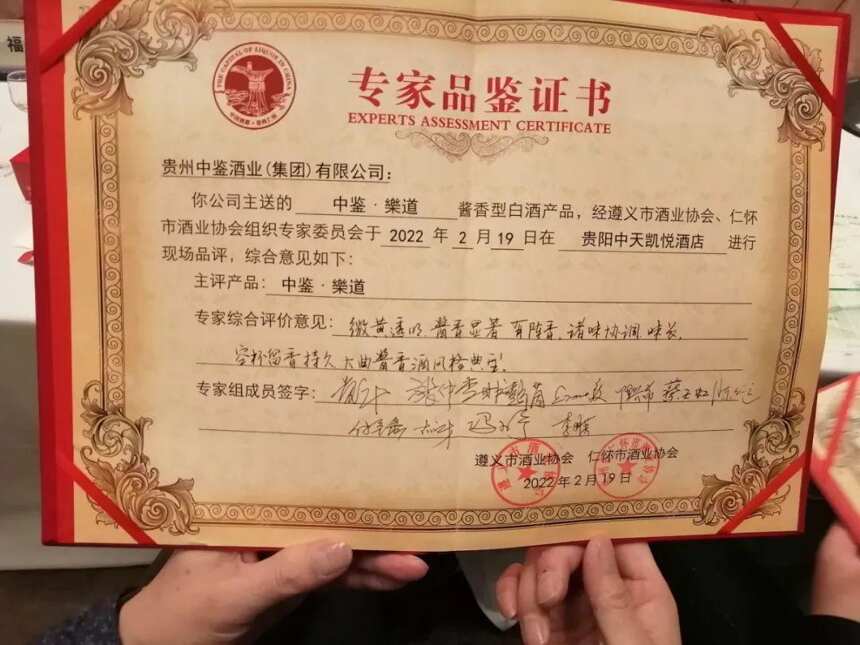 福
THE CAPITAL OF LIQUOR IN CHINA
专家品鉴证书
EXPERTS ASSESSMENT CERTIFICATE
贵州中鉴酒业(集团)有限公司:
你公司主送的 中鉴·樂道 酱香型白酒产品,经遵义市酒业协会、仁怀
市酒业协会组织专家委员会于 2022 年 2 月 19 日在 贵阳中天凯悦酒店 进行
现场品评,综合意见如下:
主评产品: 中鉴·樂道
专家综合评价意见: 微黄透明,酱香显著,有陈香,诸味协调,味长,
空杯留香持久,大曲酱香酒风格典型。
专家组成员签字:
遵义市酒业协会 仁怀市酒业协会
2022年2月19日